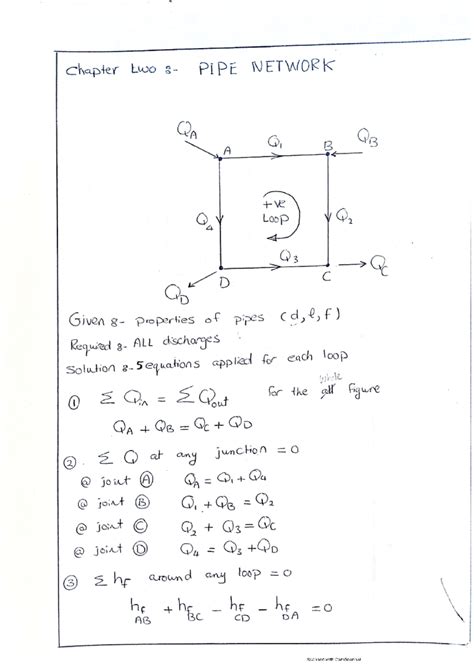 Chapter two :- PIPE NETWORK
QA
A
Q1
B
QB
+ve
Loop
Q4
Q2
Q3
D
C
QC
QD
Given :- Properties of pipes (d, l, f)
Required :- ALL discharges
Solution :- 5 equations applied for each loop
① Σ Qin = Σ Qout for the whole figure
QA + QB = QC + QD
② Σ Q at any junction = 0
@ joint Ⓐ QA = Q1 + Q4
@ joint Ⓑ Q1 + QB = Q2
@ joint Ⓒ Q2 + Q3 = QC
@ joint Ⓓ Q4 = Q3 + QD
③ Σ hf around any loop = 0
hf AB + hf BC - hf CD - hf DA = 0